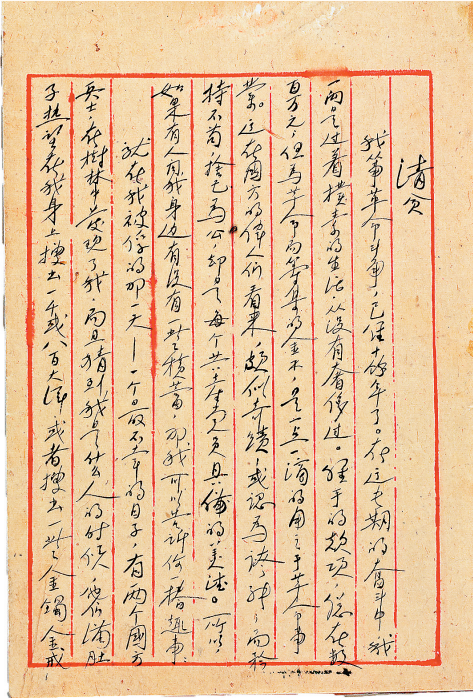 清贫
我从事革命斗争，已经十餘年了。在这长期的奋斗中，我
一向是过着樸素的生活，从没有奢侈过。經手的款项，總在数
百万元；但為革命而筹集的金錢，是一点一滴的用之于革命事
業。这在國方的偉人们看来，頗似奇蹟，或認為誇張；而矜
持不苟，捨己為公，却是每个共产党员具備的美德。所以
如果有人问我身边有没有一些積蓄，那我可以告訴你一樁趣事：
就在我被俘的那一天——一个最不幸的日子，有两个國方
兵士，在樹林中發現了我，而且猜到我是什么人的时候，他们滿肚
子热望在我身上搜出一千或八百大洋，或者搜出一些金鐲金戒，